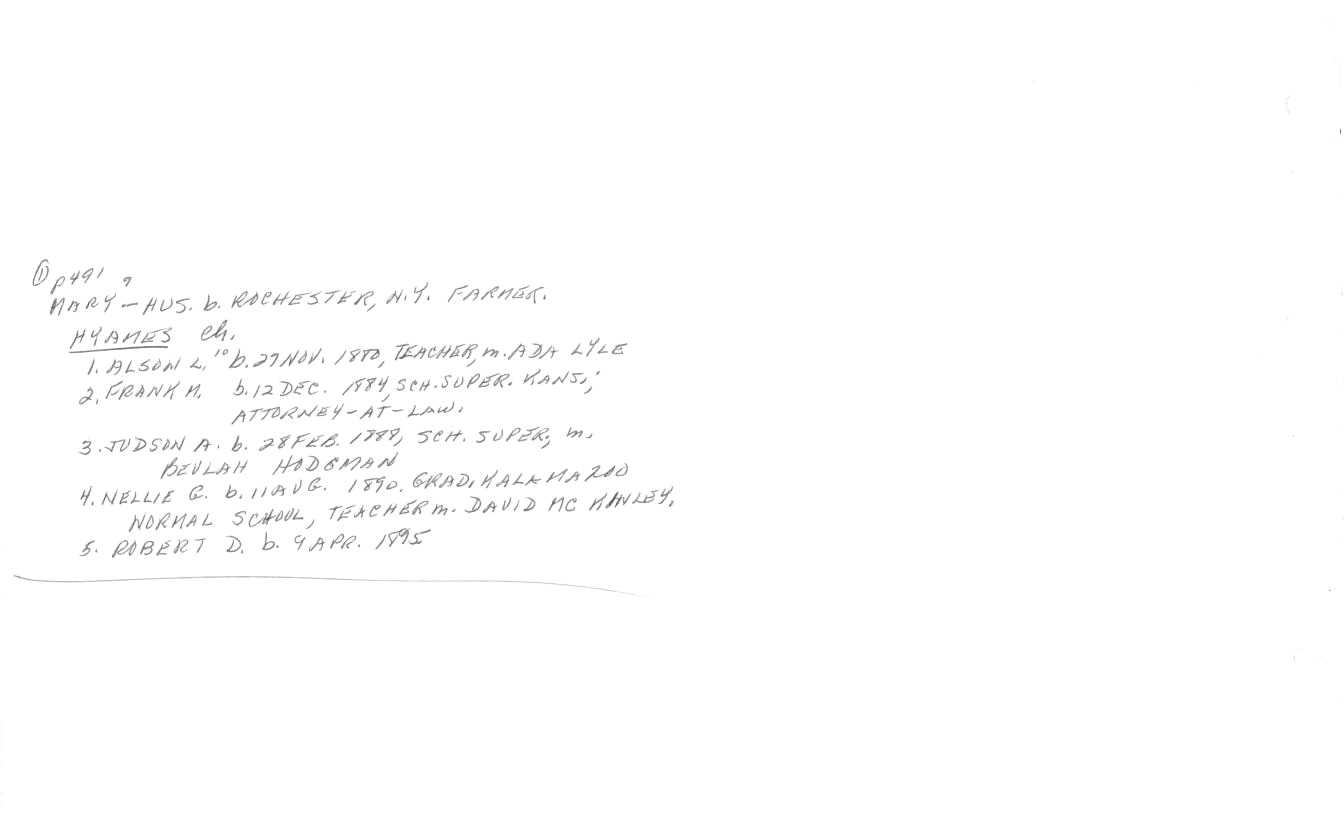 ① p491 9
MARY — HUS. b. ROCHESTER, N.Y. FARMER.
HYAMES ch.
1. ALSON L.¹⁰ b. 27 NOV. 1880, TEACHER, m. ADA LYLE
2. FRANK M. b. 12 DEC. 1884, SCH. SUPER. KANS.;
ATTORNEY-AT-LAW.
3. JUDSON A. b. 28 FEB. 1888, SCH. SUPER; m.
BEULAH HODGMAN
4. NELLIE G. b. 11 AUG. 1890. GRAD. KALAMAZOO
NORMAL SCHOOL, TEACHER m. DAVID MC
5. ROBERT D. b. 9 APR. 1895